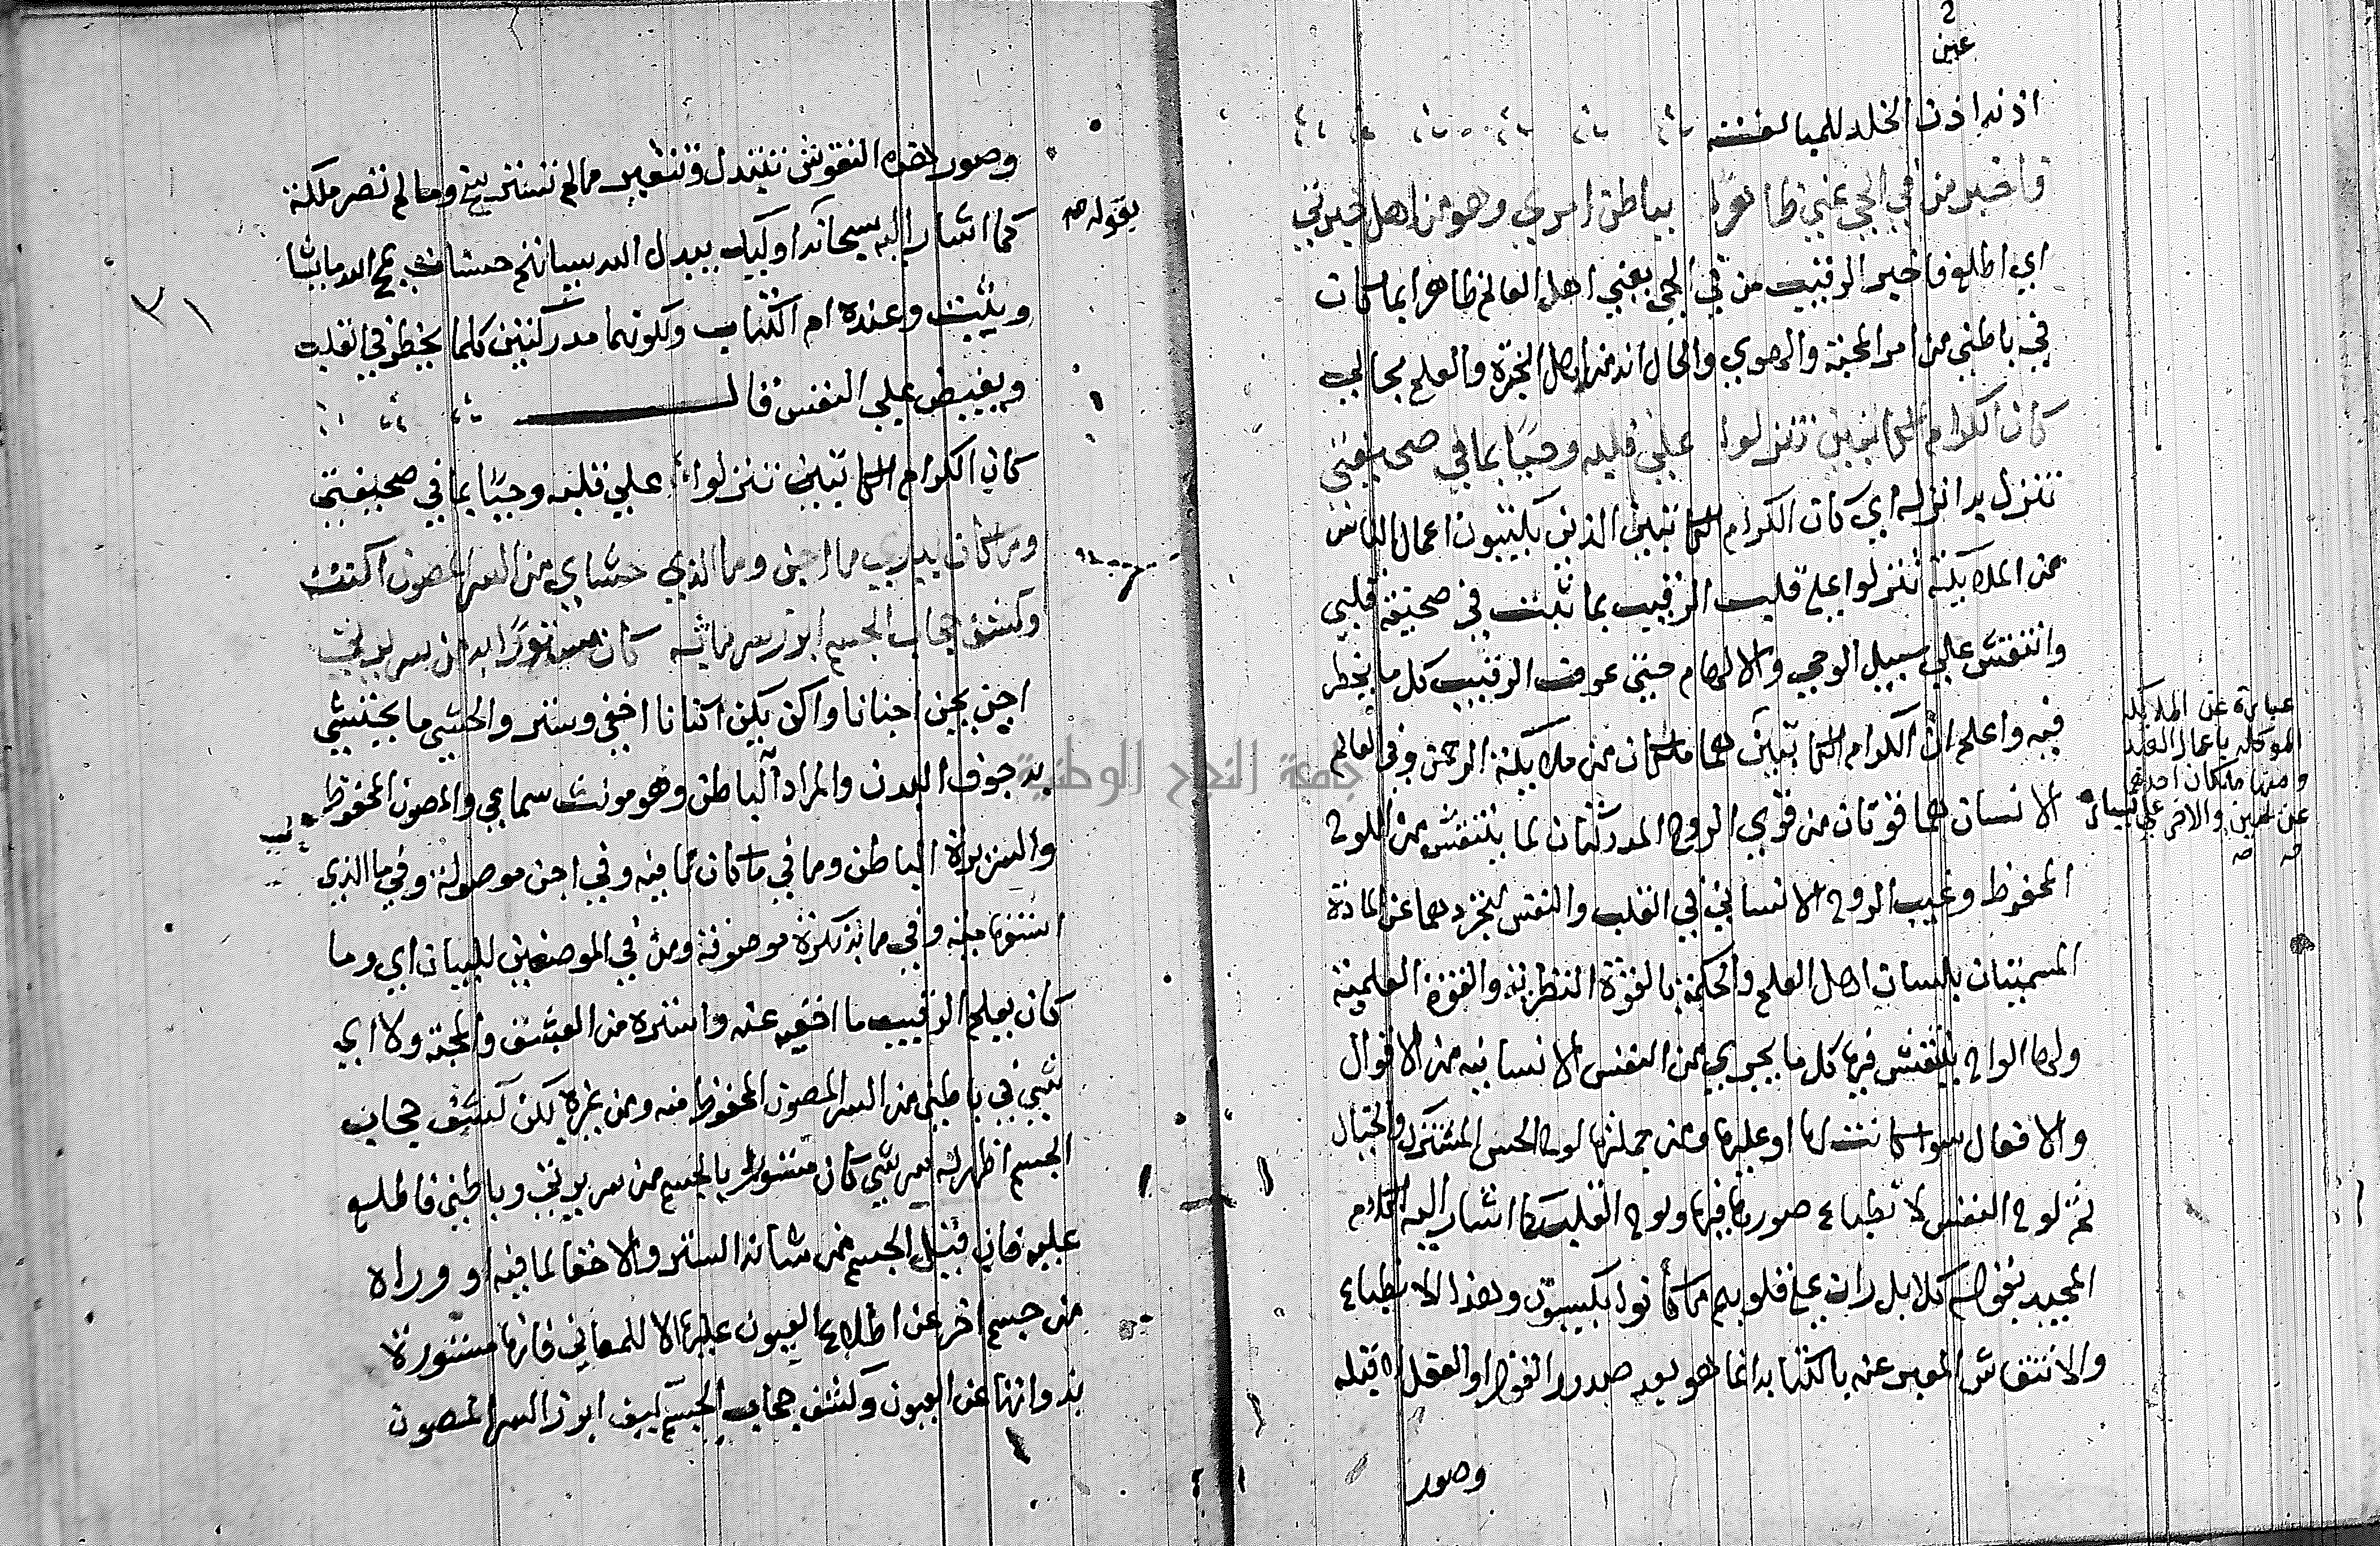 عين
اذنه اذن الخلد للمبالغة
فاخبر من في الحي عني ظاهرا بباطن امري وهو من اهل خبرتي
اي اطلع فاخبر الرقيب من في الحي يعني اهل العالم ظاهرا بما كان
في باطني من امر المحبة والهوي والحال انه من اهل الخبرة والعلم بحالي
كان الكرام الكاتبين تنزلوا علي قلبه وحيا بما في صحيفتي
تنزل به انزله اي كان الكرام الكاتبين الذين يكتبون اعمال الناس
من الملايكة تنزلوا علي قلب الرقيب بما ثبت في صحيفة قلبي
وانتقش علي سبيل الوحي والالهام حتي عرف الرقيب كل ما يخطر
فيه واعلم ان الكرام الكاتبين هما ملكان من ملايكة الرحمن وفي العالم
الانسان هما قوتان من قوي الروح المدركتان لما ينتقش من اللوح
المحفوظ وغيب الروح الانساني في القلب والنفس لتجردهما عن المادة
المسميتان بلسان اهل العلم والحكمة بالقوة النظرية والقوة العلمية
ولها الواح ينتقش فيها كل ما يجري من النفس الانسانيه من الاقوال
والافعال سوا كانت لها او عليها ومن جملتها لوح الحس المشترك والخيال
ثم لوح النفس لانطباع صورها فيها ولوح القلب كما اشار اليه الكلام
المجيد بقوله كلا بل ران علي قلوبهم ما كانوا يكسبون وهذا الانطباع
والانتقاش المعبر عنه بالكتابه انما هو بعد صدور القول او الفعل لا قبله
وصور
عبارة عن الملايكه
الموكله باعمال العبد
ومنها ملكان احدهما
عن اليمين والاخر علي اليسار
صه صه
٢١
وصور هذه النقوش تتبدل وتتغير ما لم تستتر بشي وما لم تصر ملكة
كما اشار اليه سبحانه اوليك يبدل الله سياتهم حسنات يمح الله ما يشا
ويثبت وعنده ام الكتاب ولكونهما مدركتين كلما يخطر في القلب
ويفيض علي النفس قال
بقوله صه
كان الكرام الكاتبين تنزلوا علي قلبه وحيا بما في صحيفتي
وما كان يدري ما اجن وما الذي حشاي من السر المصون اكنت
وكشف حجاب الجسم ابرز سر ما به كان مستورا له من سريرتي
اجن يجن اجنانا واكن يكن اكنانا اخفي وستر والحشي ما يحتشي
به جوف البدن والمراد الباطن وهو مونث سماعي والمصون المحفوظ
والسريرة الباطن وما في ما كان نافيه وفي اجن موصولة وفي ما الذي
استفهاميه وفي ما به نكرة موصوفة ومن في الموضعين للبيان اي وما
كان يعلم الرقيب ما اخفيه عنه واستره من العشق والمحبة ولا اي
شي في باطني من السر المصون المحفوظ منه ومن غيره لكن كشف حجاب
الجسم اظهر له سر شي كان مستورا بالجسم من سريرتي وباطني فاطلع
عليه فان قيل الجسم من شانه الستر والاخفا لما فيه او وراه
من جسم اخر عن اطلاع العيون عليها لا للمعاني فانها مستورة
بذواتها عن العيون وكشف حجاب الجسم كيف ابرز السر المصون